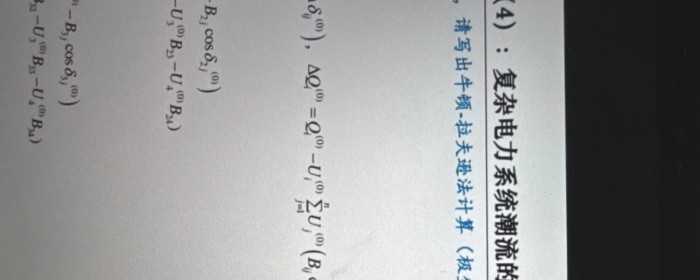 (4)：复杂电力系统潮流的
，请写出牛顿-拉夫逊法计算（极
δᵢⱼ⁽⁰⁾), ΔQᵢ⁽⁰⁾ = Qᵢ⁽⁰⁾ − Uᵢ⁽⁰⁾ ∑ⱼ₌₁ⁿ Uⱼ⁽⁰⁾ (Bᵢⱼ
B₂ⱼ cos δ₂ⱼ⁽⁰⁾)
−U₃⁽⁰⁾B₂₃ −U₄⁽⁰⁾B₂₄)
⁽⁰⁾ − B₃ⱼ cos δ₃ⱼ⁽⁰⁾)
−U₃⁽⁰⁾B₃₃ −U₄⁽⁰⁾B₃₄)